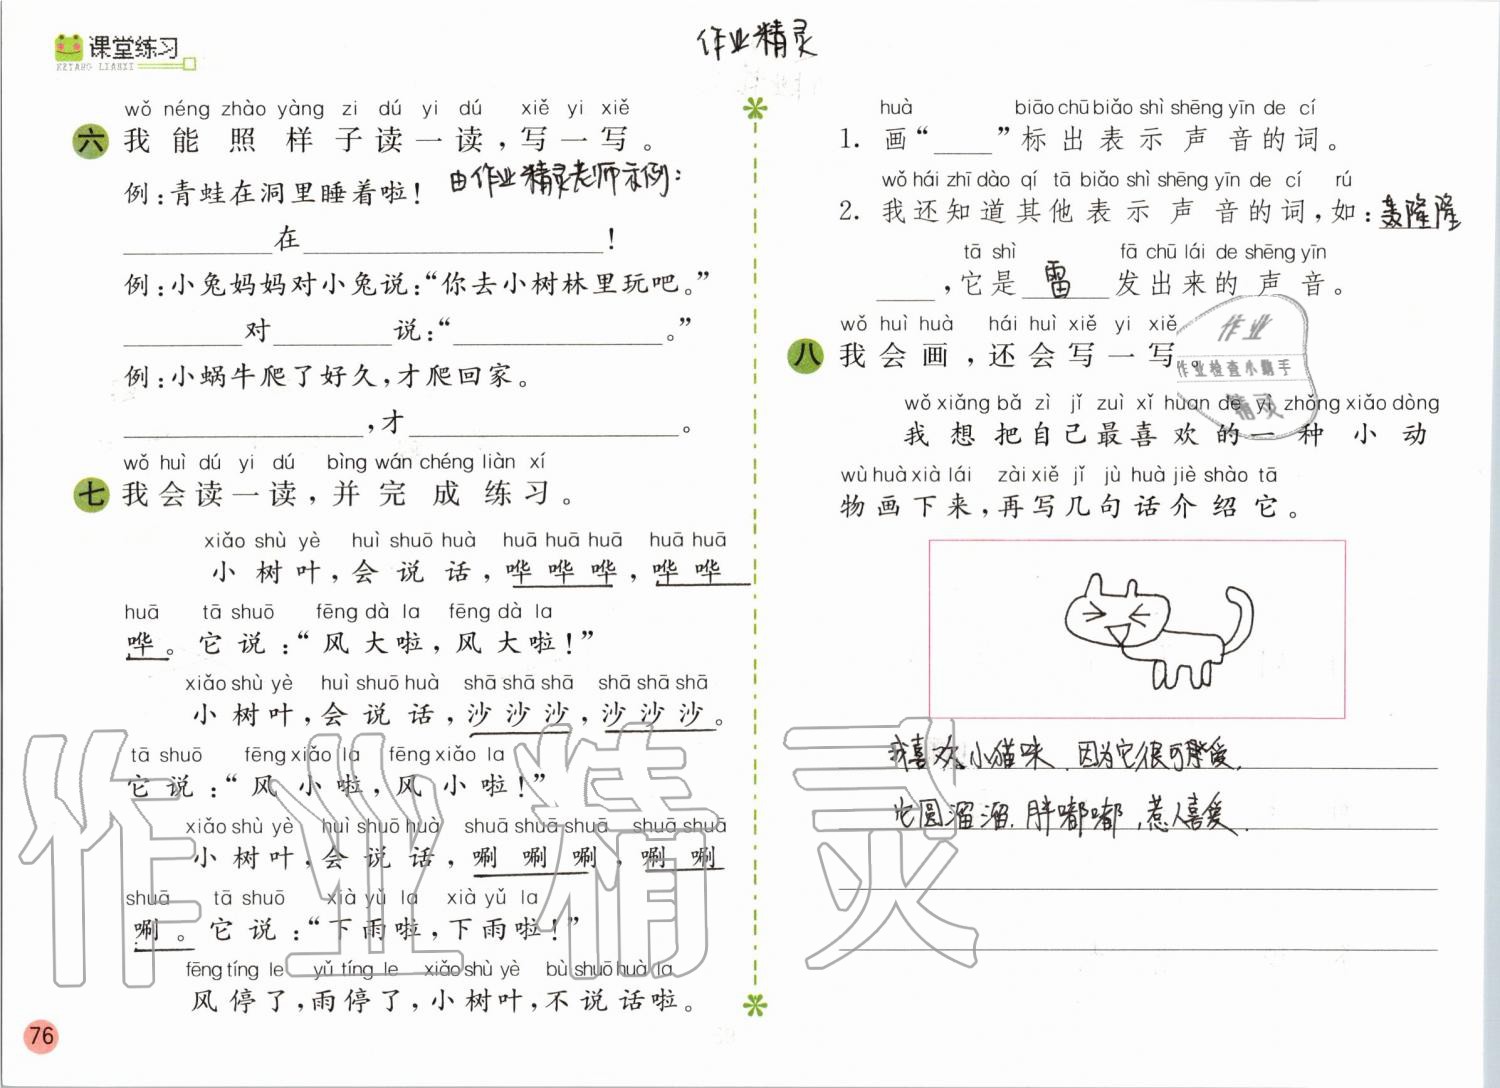 课堂练习
KETANG LIANXI
作业精灵
wǒ néng zhào yàng zi dú yi dú xiě yi xiě
六 我能照样子读一读，写一写。
例：青蛙在洞里睡着啦！ 由作业精灵老师示例：
____在____！
例：小兔妈妈对小兔说：“你去小树林里玩吧。”
____对____说：“____。”
例：小蜗牛爬了好久，才爬回家。
____，才____。
wǒ huì dú yi dú bìng wán chéng liàn xí
七 我会读一读，并完成练习。
xiǎo shù yè huì shuō huà huā huā huā huā huā
小树叶，会说话，哗哗哗，哗哗
huā tā shuō fēng dà la fēng dà la
哗。它说：“风大啦，风大啦！”
xiǎo shù yè huì shuō huà shā shā shā shā shā shā
小树叶，会说话，沙沙沙，沙沙沙。
tā shuō fēng xiǎo la fēng xiǎo la
它说：“风小啦，风小啦！”
xiǎo shù yè huì shuō huà shuā shuā shuā shuā shuā
小树叶，会说话，唰唰唰，唰唰
shuā tā shuō xià yǔ la xià yǔ la
唰。它说：“下雨啦，下雨啦！”
fēng tíng le yǔ tíng le xiǎo shù yè bù shuō huà la
风停了，雨停了，小树叶，不说话啦。
76
huà biāo chū biǎo shì shēng yīn de cí
1. 画“____”标出表示声音的词。
wǒ hái zhī dào qí tā biǎo shì shēng yīn de cí rú
2. 我还知道其他表示声音的词，如：轰隆隆
tā shì fā chū lái de shēng yīn
____，它是 雷 发出来的声音。
wǒ huì huà hái huì xiě yi xiě
八 我会画，还会写一写。
作业
作业检查小助手
精灵
wǒ xiǎng bǎ zì jǐ zuì xǐ huan de yì zhǒng xiǎo dòng
我想把自己最喜欢的一种小动
wù huà xià lái zài xiě jǐ jù huà jiè shào tā
物画下来，再写几句话介绍它。
我喜欢小猫咪，因为它很可爱，
它圆溜溜，胖嘟嘟，惹人喜爱．
作业精灵